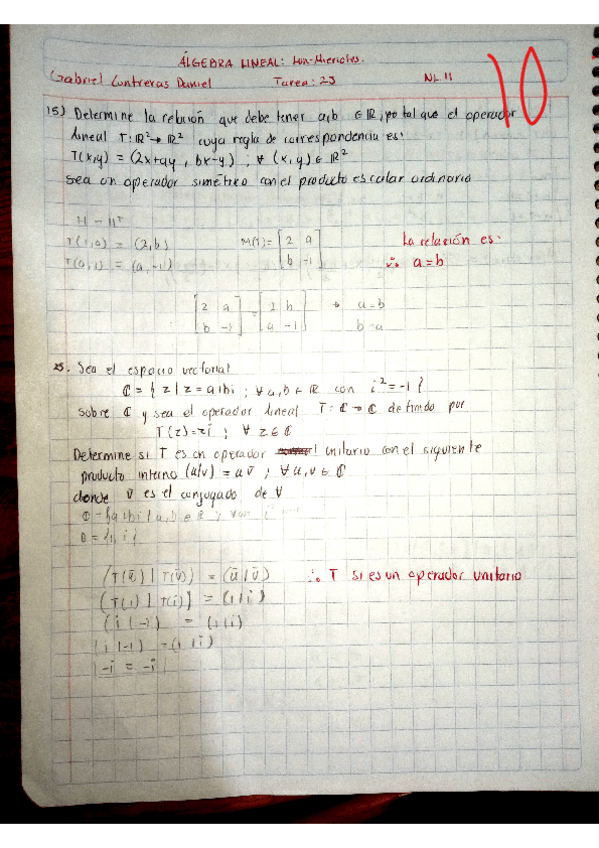 ÁLGEBRA LINEAL: Lun-Miercoles.
Gabriel Contreras Daniel Tarea: 23 NL 11
10
15) Determine la relación que debe tener a,b ∈ ℝ, pa tal que el operador
lineal T: ℝ² → ℝ² cuya regla de correspondencia es:
T(x,y) = (2x+ay, bx-y) ; ∀ (x,y) ∈ ℝ²
sea un operador simétrico con el producto escalar ordinario
T(1,0) = (2,b) M(T) = [2 a
T(0,1) = (a,-1) b -1]
La relación es:
∴ a=b
[2 a = [2 b → a=b
b -1] a -1] b=a
25. Sea el espacio vectorial
ℂ = { z | z = a+bi ; ∀ a,b ∈ ℝ con i² = -1 }
sobre ℂ y sea el operador lineal T: ℂ→ℂ definido por
T(z) = zi ; ∀ z ∈ ℂ
Determine si T es un operador unitario con el siguiente
producto interno (u|v) = u v̄ ; ∀ u,v ∈ ℂ
donde v̄ es el conjugado de v
B = {1, i}
(T(ū) | T(v̄)) = (ū | v̄)
(T(1) | T(i)) = (1 | i)
(i | -1) = (1 | i)
(i | -1) = (1 | i)
-i = -i
∴ T si es un operador unitario